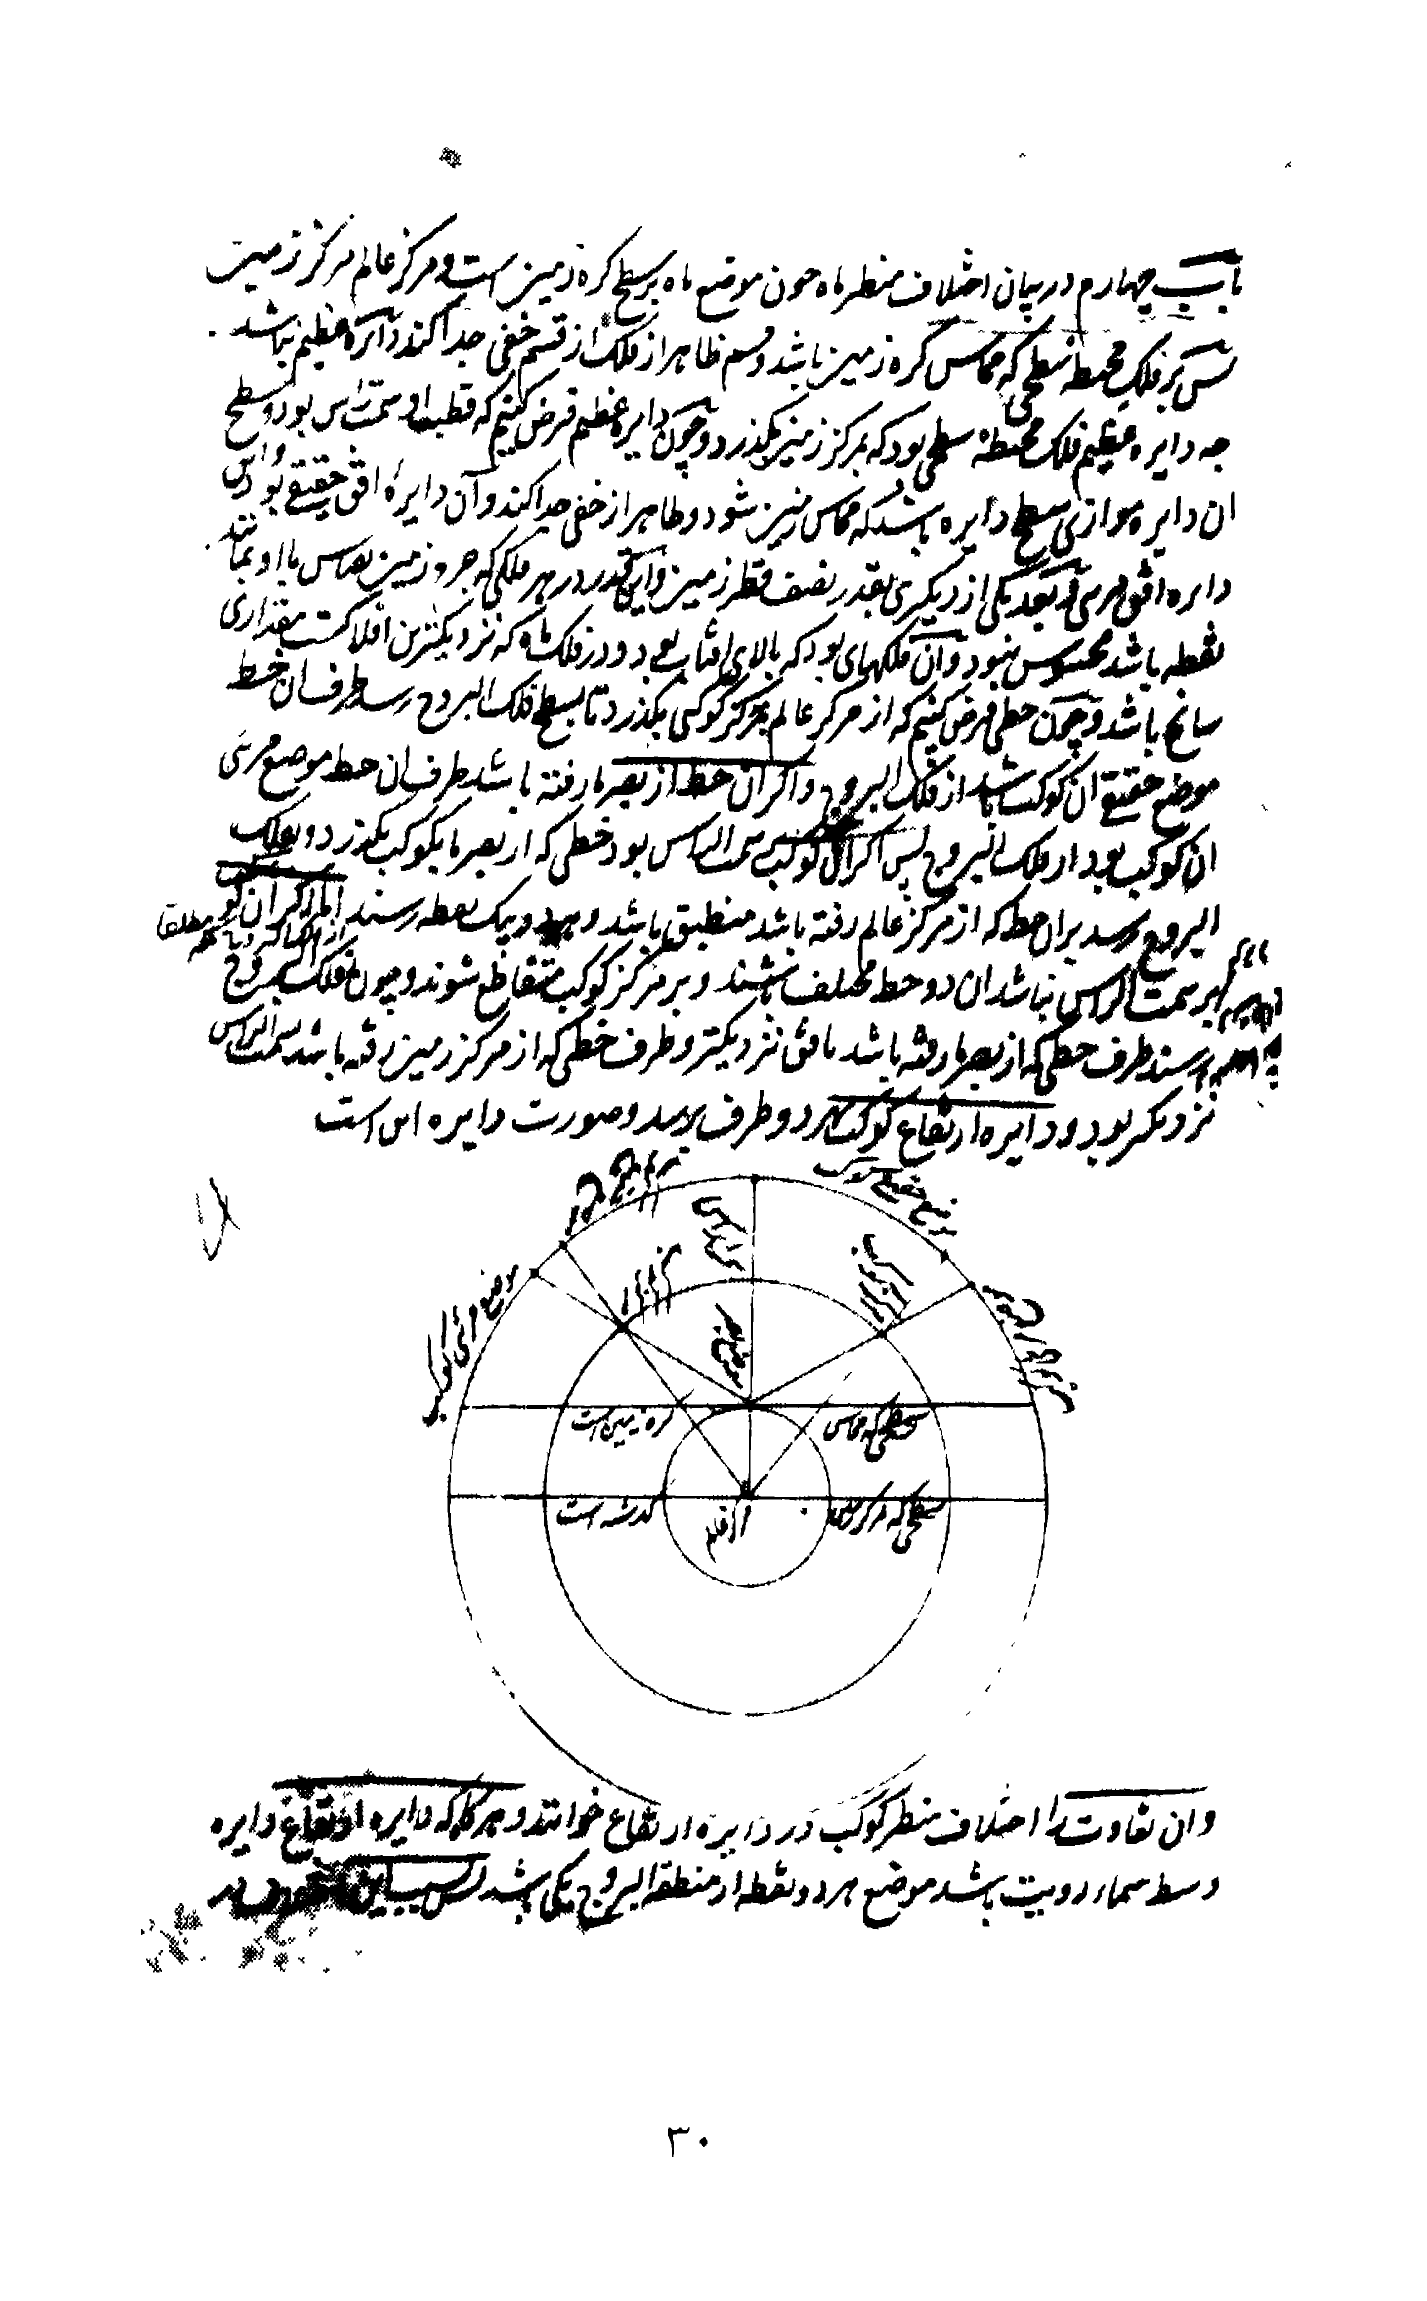 باب چهارم در بیان اختلاف منظر ماه چون موضع ما بر سطح کره زمین است و مرکز عالم مرکز زمین
پس بر فلک محیط سطحی که مماس کره زمین باشد و قسم ظاهر از فلک از قسم خفی جدا کند دایره عظیم نباشد
چه دایره عظیم فلک محیط سطحی بود که بمرکز زمین بگذرد و چون دایره عظیم فرض کنیم که قطبها او سمت راس بود و سطح
ان دایره موازی سطح دایره باشد که مماس زمین شود و ظاهر از خفی جدا کند و آن دایره افق حقیقی بود و این
دایره افق مرئی و بعد یکی از دیگری بقدر نصف قطر زمین و این قدر در هر فلکی که جرم زمین بقیاس با او بمانند
نقطه باشد محسوس نبود و آن فلکهای بود که بالای افتاب بود و در فلک ماه که نزدیکترین افلاکست مقداری
صالح باشد و چون خطی فرض کنیم که از مرکز عالم بمرکز کوکبی بگذرد تا بسطح فلک البروج رسد طرف ان خط
موضع حقیقی ان کوکب باشد از فلک البروج و اگر ان خط از بصر ما رفته باشد طرف ان خط موضع مرئی
ان کوکب بود از فلک البروج پس اگر ان کوکب بر سمت الراس بود خطی که از بصر ما بکوکب بگذرد و بفلک
البروج رسد بران خط که از مرکز عالم رفته باشد منطبق باشد و هر دو بیک نقطه رسند اما اگر ان کو
مطلقا
بر سمت الراس نباشد ان دو خط مختلف باشند و بر مرکز کوکب متقاطع شوند و چون بفلک البروج
رسند طرف خطی که از بصر ما رفته باشد بافق نزدیکتر و طرف خطی که از مرکز زمین رفته باشد بسمت الراس
نزدیکتر بود و دایره ارتفاع کوکب بهر دو طرف برسد و صورت دایره این است
موضع حقیقی کوکب
سمت الراس
مرکز کوکب
موضع مرئی کوکب
موضع بصر
سطحی که مماس
کره زمین است
سطحی که بر مرکز زمین
گذشته است
مرکز عالم
وان تفاوت را اختلاف منظر کوکب در دایره ارتفاع خوانند و هرگاه که دایره ارتفاع دایره
وسط سماء رویت باشد موضع هر دو نقطه از منطقه البروج یکی باشد پس بسبب این
۳۰